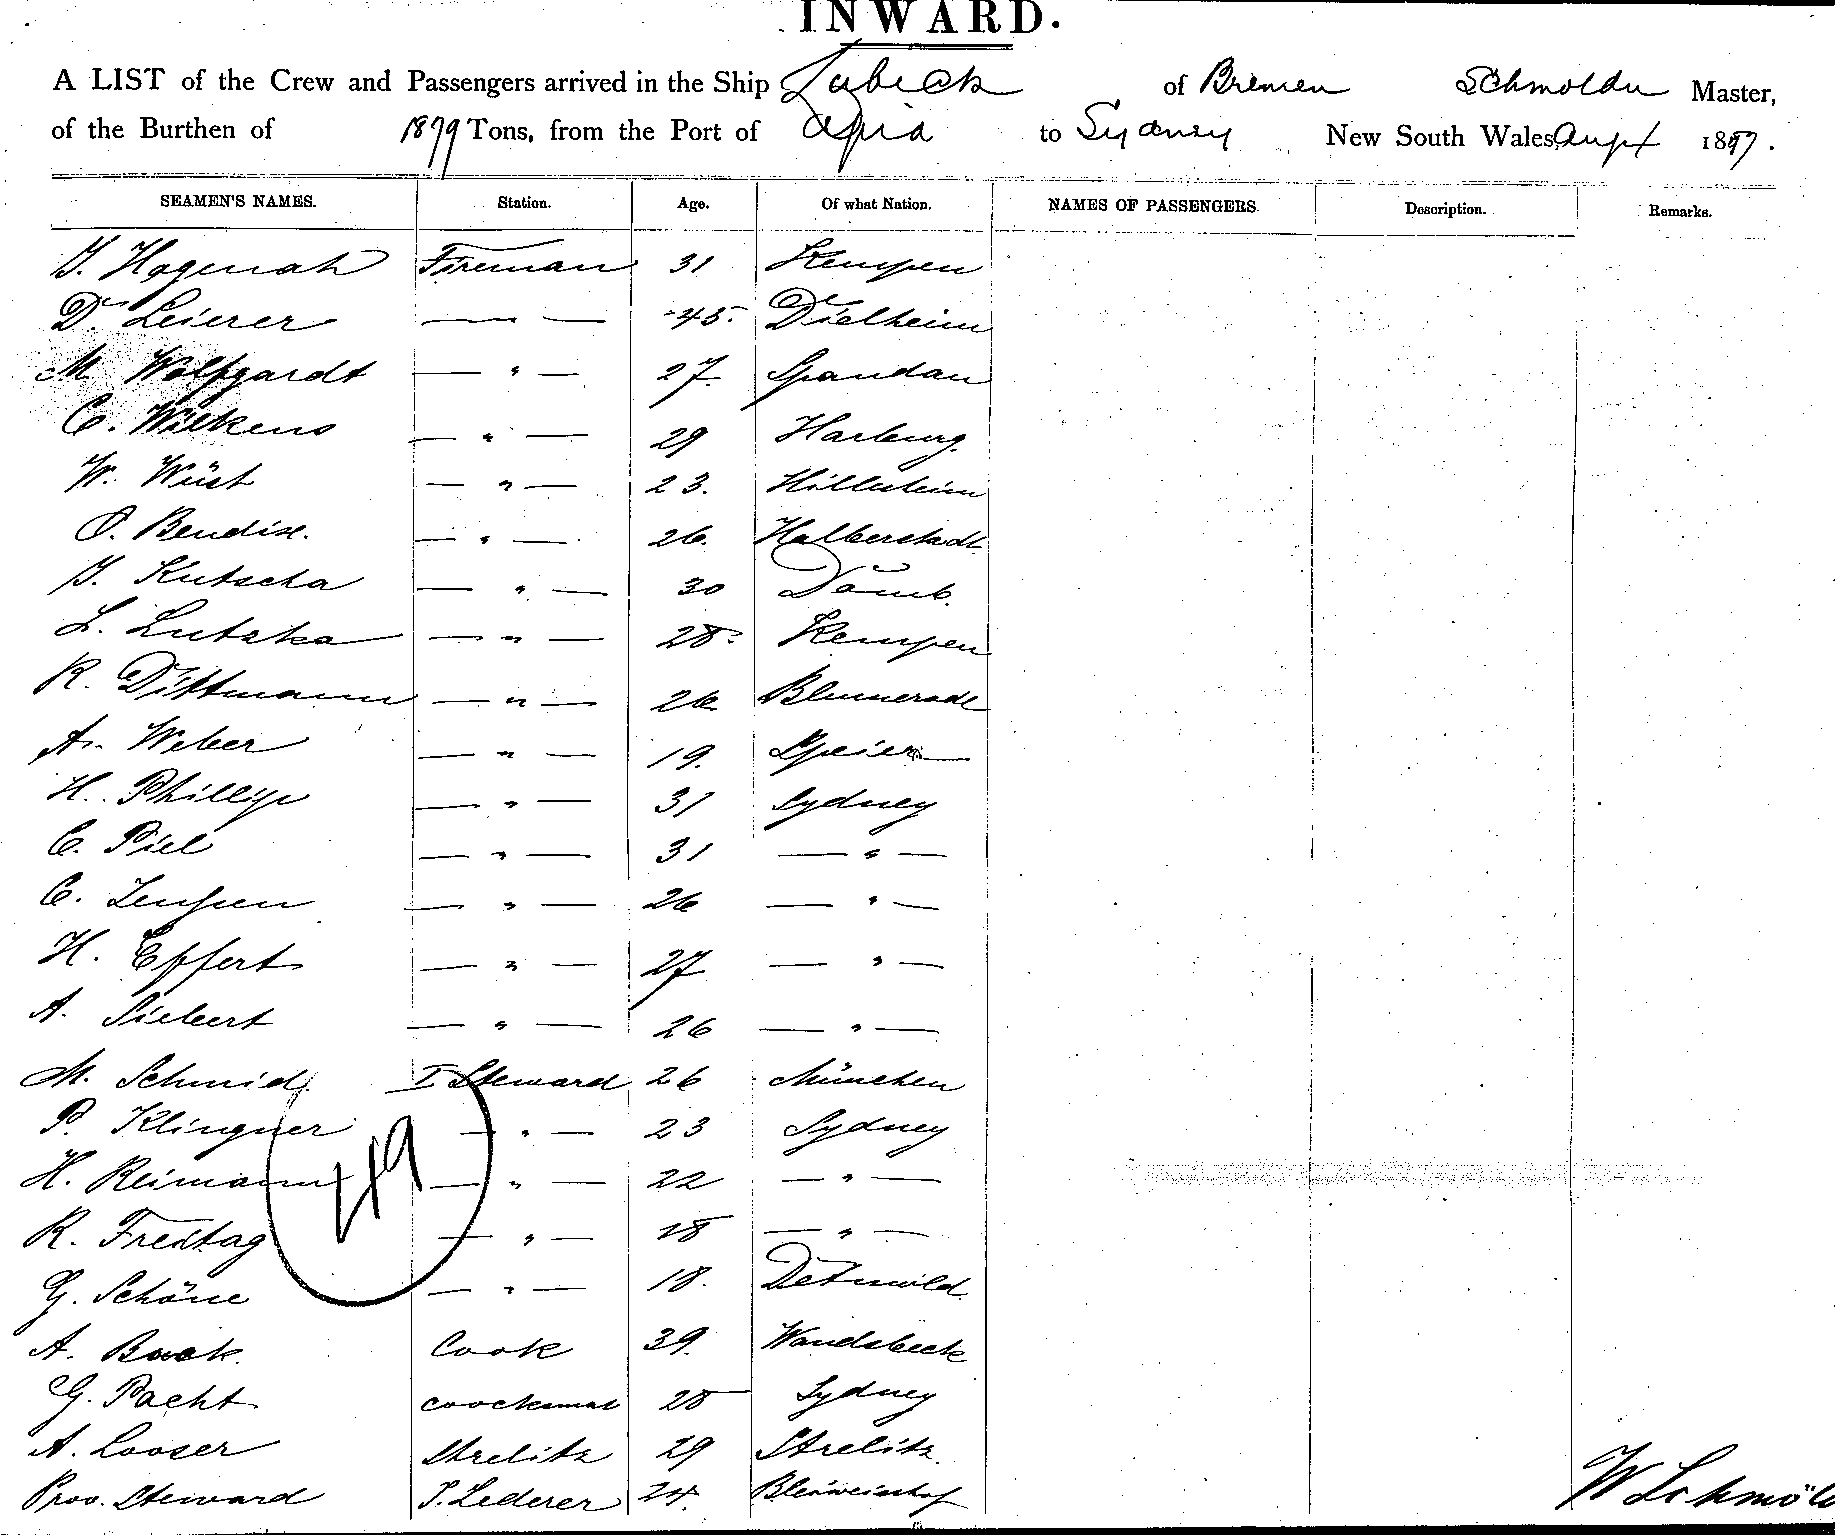 INWARD.
A LIST of the Crew and Passengers arrived in the Ship Lubeck of Bremen Schmolder Master,
of the Burthen of 1879 Tons, from the Port of Apia to Sydney New South Wales, Augst 1897.
SEAMEN'S NAMES. Station. Age. Of what Nation. NAMES OF PASSENGERS. Description. Remarks.
J. Hagenah Fireman 31 Kempen
D. Leierer — " — 45. Dielheim
M Wolfgardt — " — 27. Spandau
C. Wilkens — " — 29 Harburg.
W. Wüst — " — 23. Hillesheim
O. Bendix. — " — 26. Halberstadt
J. Kutscha — " — 30
L. Lutzka — " — 28. Kempen
R. Dittmann — " — 26. Blumerode
A. Weber — " — 19. Speier
H. Phillip — " — 31 Sydney
C. Piel — " — 31 — " —
C. Jensen — " — 26 — " —
H. Effert — " — 27 — " —
A. Siebert — " — 26 — " —
M. Schmid. I Steward 26 München
P. Klingner — " — 23 Sydney
H. Reimann — " — 22 — " —
49
R. Freitag — " — 18 — " —
G. Schöne — " — 18. Detmold.
A. Back. Cook 39. Wandsbeck
G. Pacht coocksmat 28 Sydney
A. Looser Strelitz 29 Strelitz.
Prov. Steward J. Lederer 24.
W Schmöld